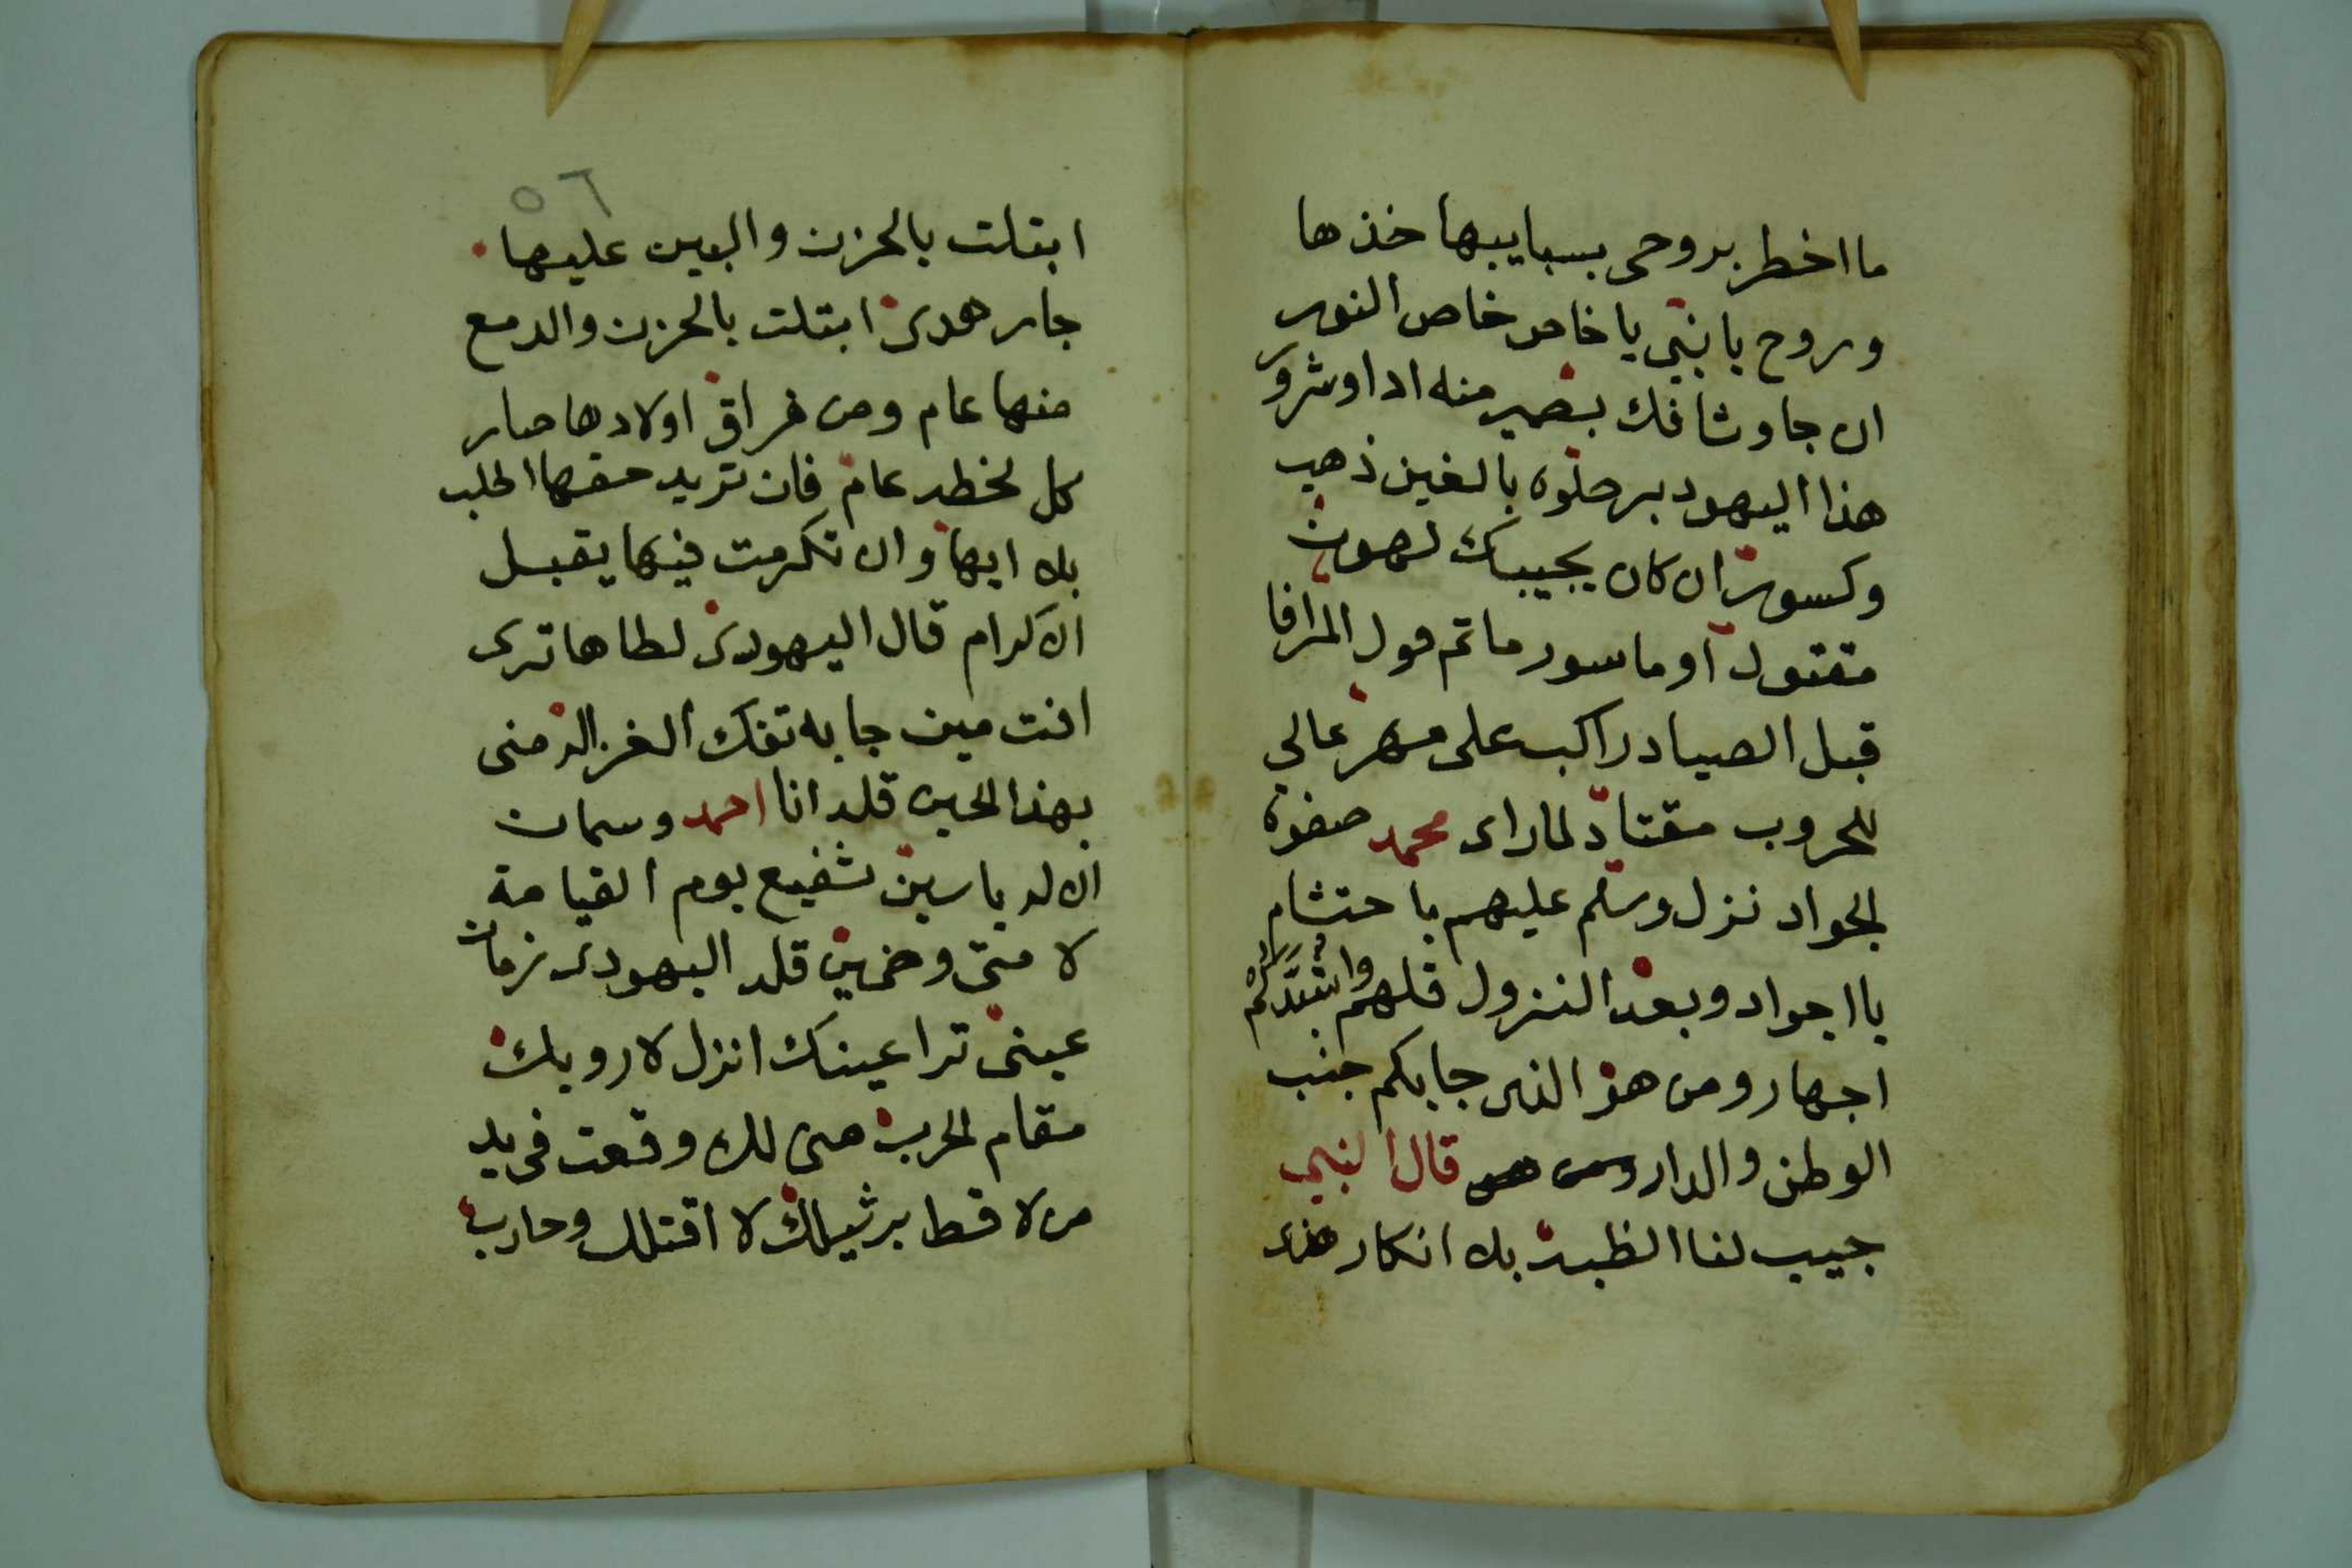 ما اخطر بروحى بسبايبها خذها
وروح يا نبى يا خاص خاص النور
ان جا وشافك بصير منه اذا وشرور
هذا اليهود برحلوه بالغين ذهب
وكسور ان كان يجيبك لهون
مقتول او ماسور ماتم قول المرافا
قبل الصياد راكب على مهر عالي
للحروب مقتاد لما راى محمد صفوة
الجواد نزل وسلم عليهم با حتشام
يا اجواد وبعد النزول قلهم
اجهار ومن هو الذى جابكم جنب
الوطن والدار ومن هو قال النبى
جيب لنا الظبية بلا انكار هذى
٥٦
ابتلت بالحزن والبين عليها
جار هدى ابتلت بالحزن والدمع
منها عام ومن فراق اولادها صار
كل لخطه عام فان تريد حقها اطلب
بلا ايها وان تكرمت فيها يقبل
الاكرام قال اليهودى لطاها ترى
انت مين جابه تفك الغزاله منى
بهذا الحين قله انا احمد وسمان
الاله ياسين شفيع يوم القيامة
لا متى وضمين قله اليهودى زمان
عينى ترا عينك انزل لارويك
مقام الحرب هى لك وقعت فى يد
من لا قط يرثيلك لا اقتلك وحارب